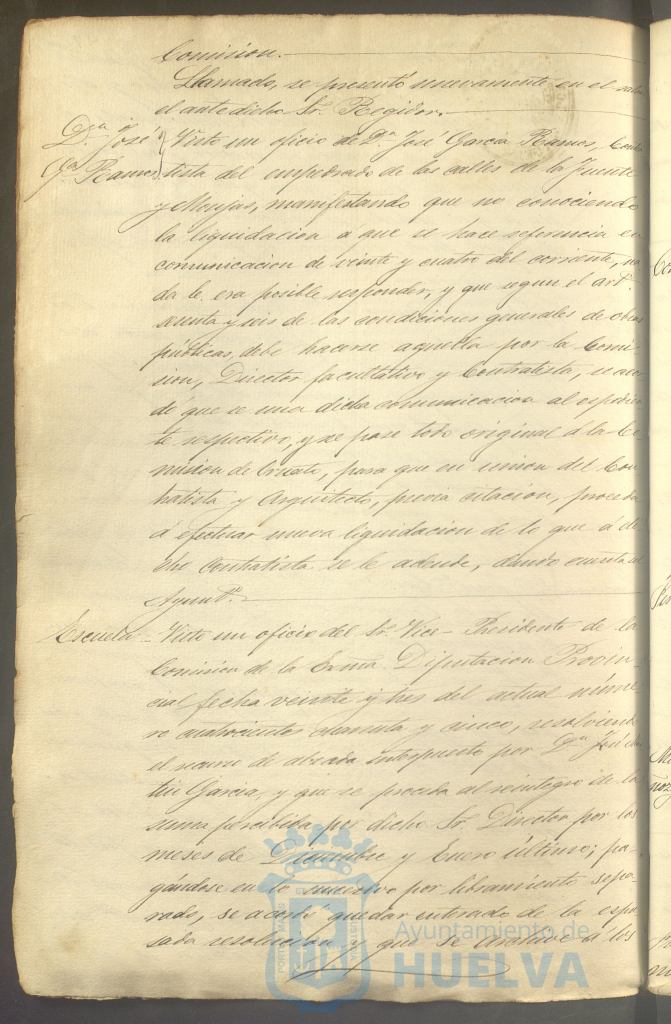 Comision.
Llamado, se presentó nuevamente en el salon
el antedicho Sr. Regidor.
Dn. José
Ga. Ramos
Visto un oficio de Dn. José Garcia Ramos, Contra
tista del empedrado de las calles de la Fuente
y Monjas, manifestando que no conociendo
la liquidacion a que se hace referencia en
comunicacion de veinte y cuatro del corriente, na
da le era posible responder, y que segun el artº.
y seis de las condiciones generales de obras
públicas, debe hacerse aquella por la Comi-
sion, Director facultativo y Contratista, se acor
dó que se una dicha comunicacion al espedien
te respectivo, y se pase todo original á la Co
mision de Ornato, para que en union del Con
tratista y Arquitecto, previa citacion, proceda
á efectuar nueva liquidacion de lo que á di
cho Contratista se le adeude, dando cuenta al
Ayuntº.
Escuela
Visto un oficio del Sr. Vice-Presidente de la
Comision de la Exma. Diputacion Provin-
cial fecha veinte y tres del actual núme
ro cuatrocientos cuarenta y cinco, resolviendo
el recurso de alzada interpuesto por Dn. José
Garcia, y que se proceda al reintegro de la
suma percibida por dicho Sr. Director por los
meses de Diciembre y Enero último; pa-
gándose en lo sucesivo por libramiento sepa-
rado, se acordó quedar enterado de la espre
sada resolucion y que se archive á los
Ayuntamiento de
HUELVA